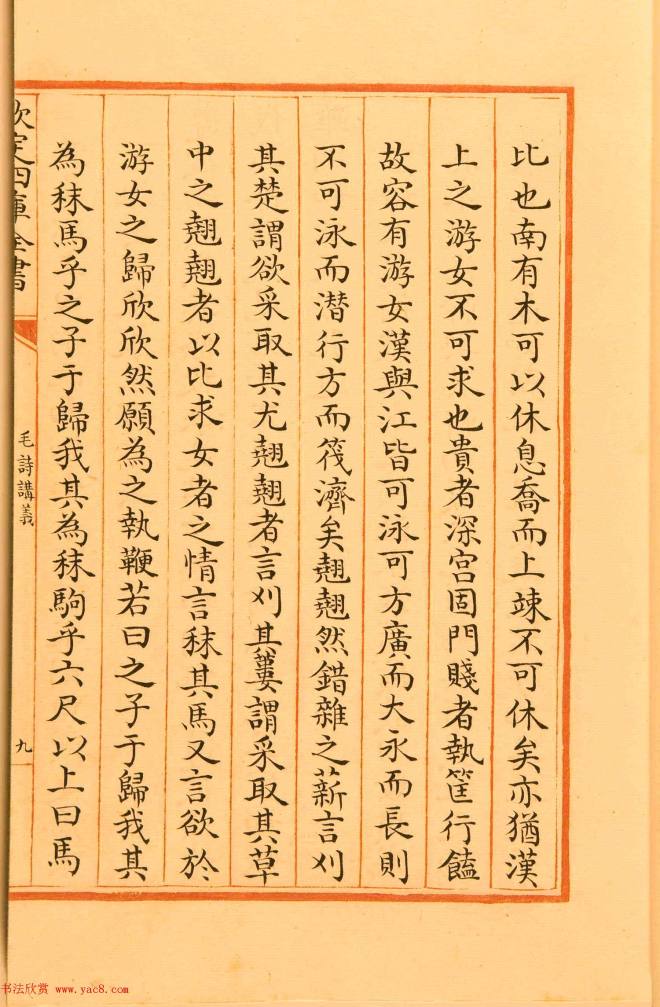 比也南有木可以休息喬而上竦不可休矣亦猶漢
上之游女不可求也貴者深宫固門賤者執筐行饁
故容有游女漢與江皆可泳可方廣而大永而長則
不可泳而潜行方而筏濟矣翹翹然錯雜之薪言刈
其楚謂欲采取其尤翹翹者言刈其蔞謂采取其草
中之翹翹者以比求女者之情言秣其馬又言欲於
游女之歸欣欣然願為之執鞭若曰之子于歸我其
為秣馬乎之子于歸我其為秣駒乎六尺以上曰馬
欽定四庫全書
毛詩講義
九
书法欣赏 www.yac8.com